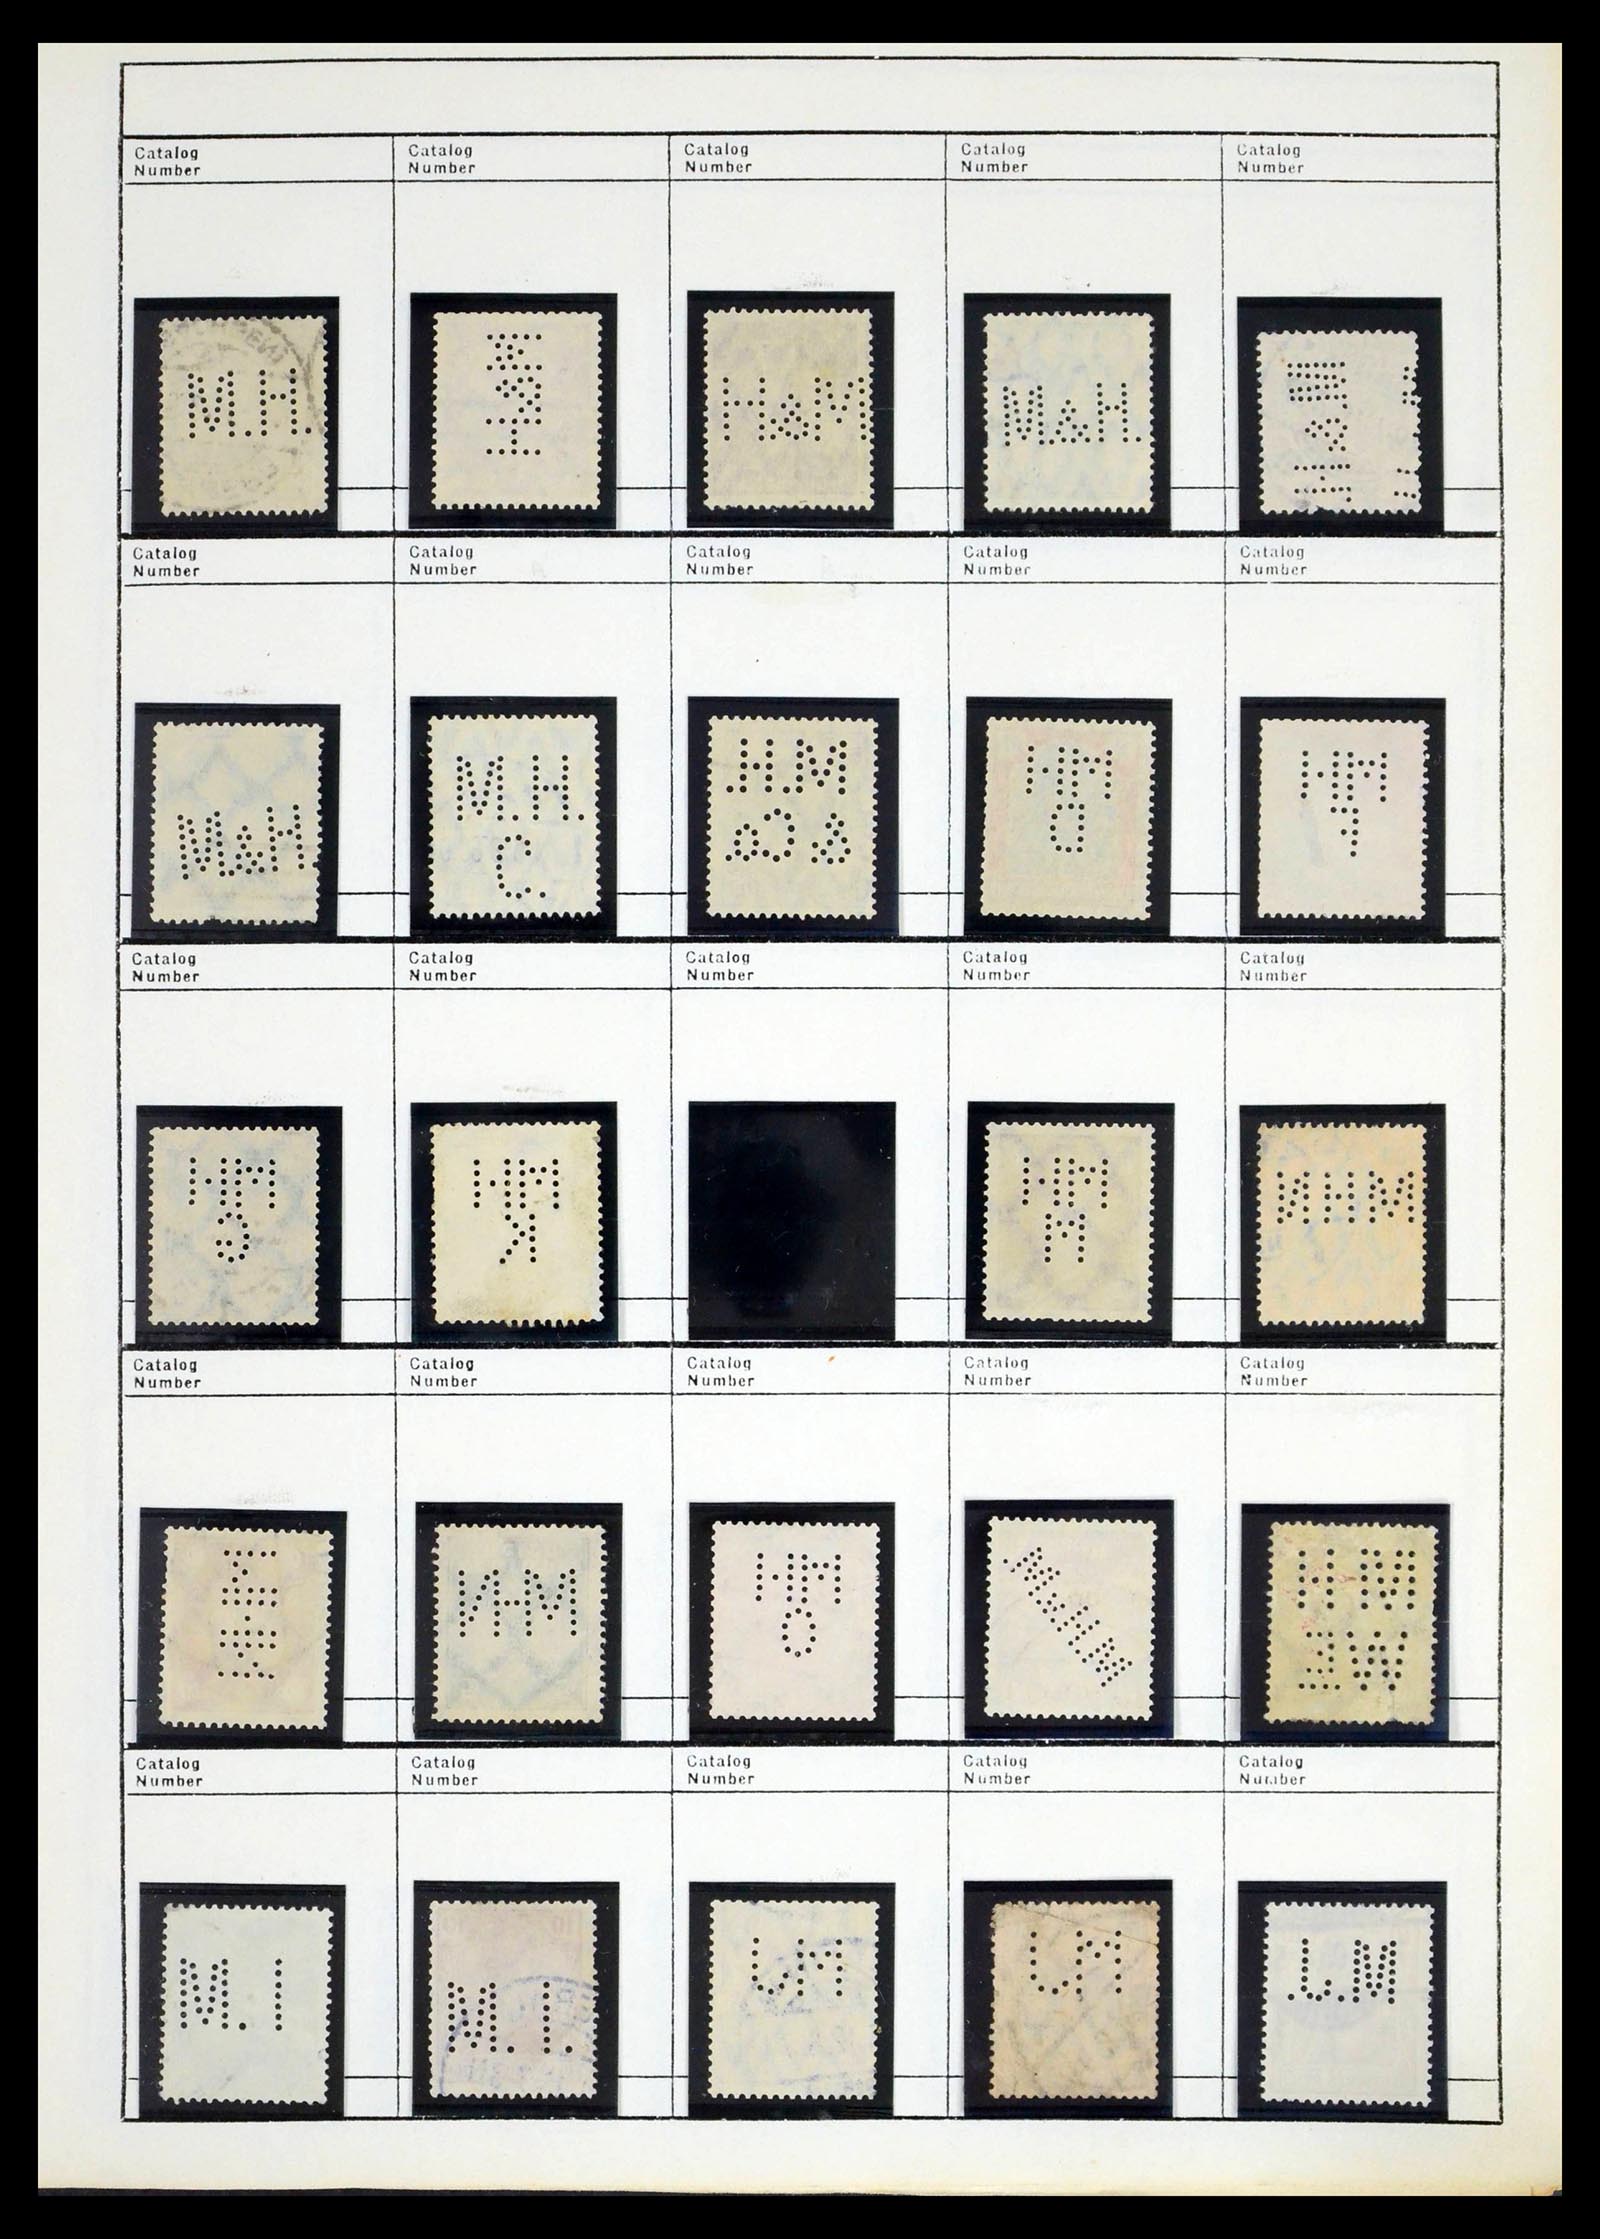 Catalog Number Catalog Number Catalog Number Catalog Number Catalog Number
M.H.
H&M
H&M
M.&H.
H&M
Catalog Number Catalog Number Catalog Number Catalog Number Catalog Number
M&H
M.H.
C.
H.M
&C&
HM
D
HM
F
Catalog Number Catalog Number Catalog Number Catalog Number Catalog Number
HM
G
HM
K
HM
M
NHM
Catalog Number Catalog Number Catalog Number Catalog Number Catalog Number
NHM
HM
O
HM
WE
Catalog Number Catalog Number Catalog Number Catalog Number Catalog Number
M.I
M.I.
JM
JM
J.M